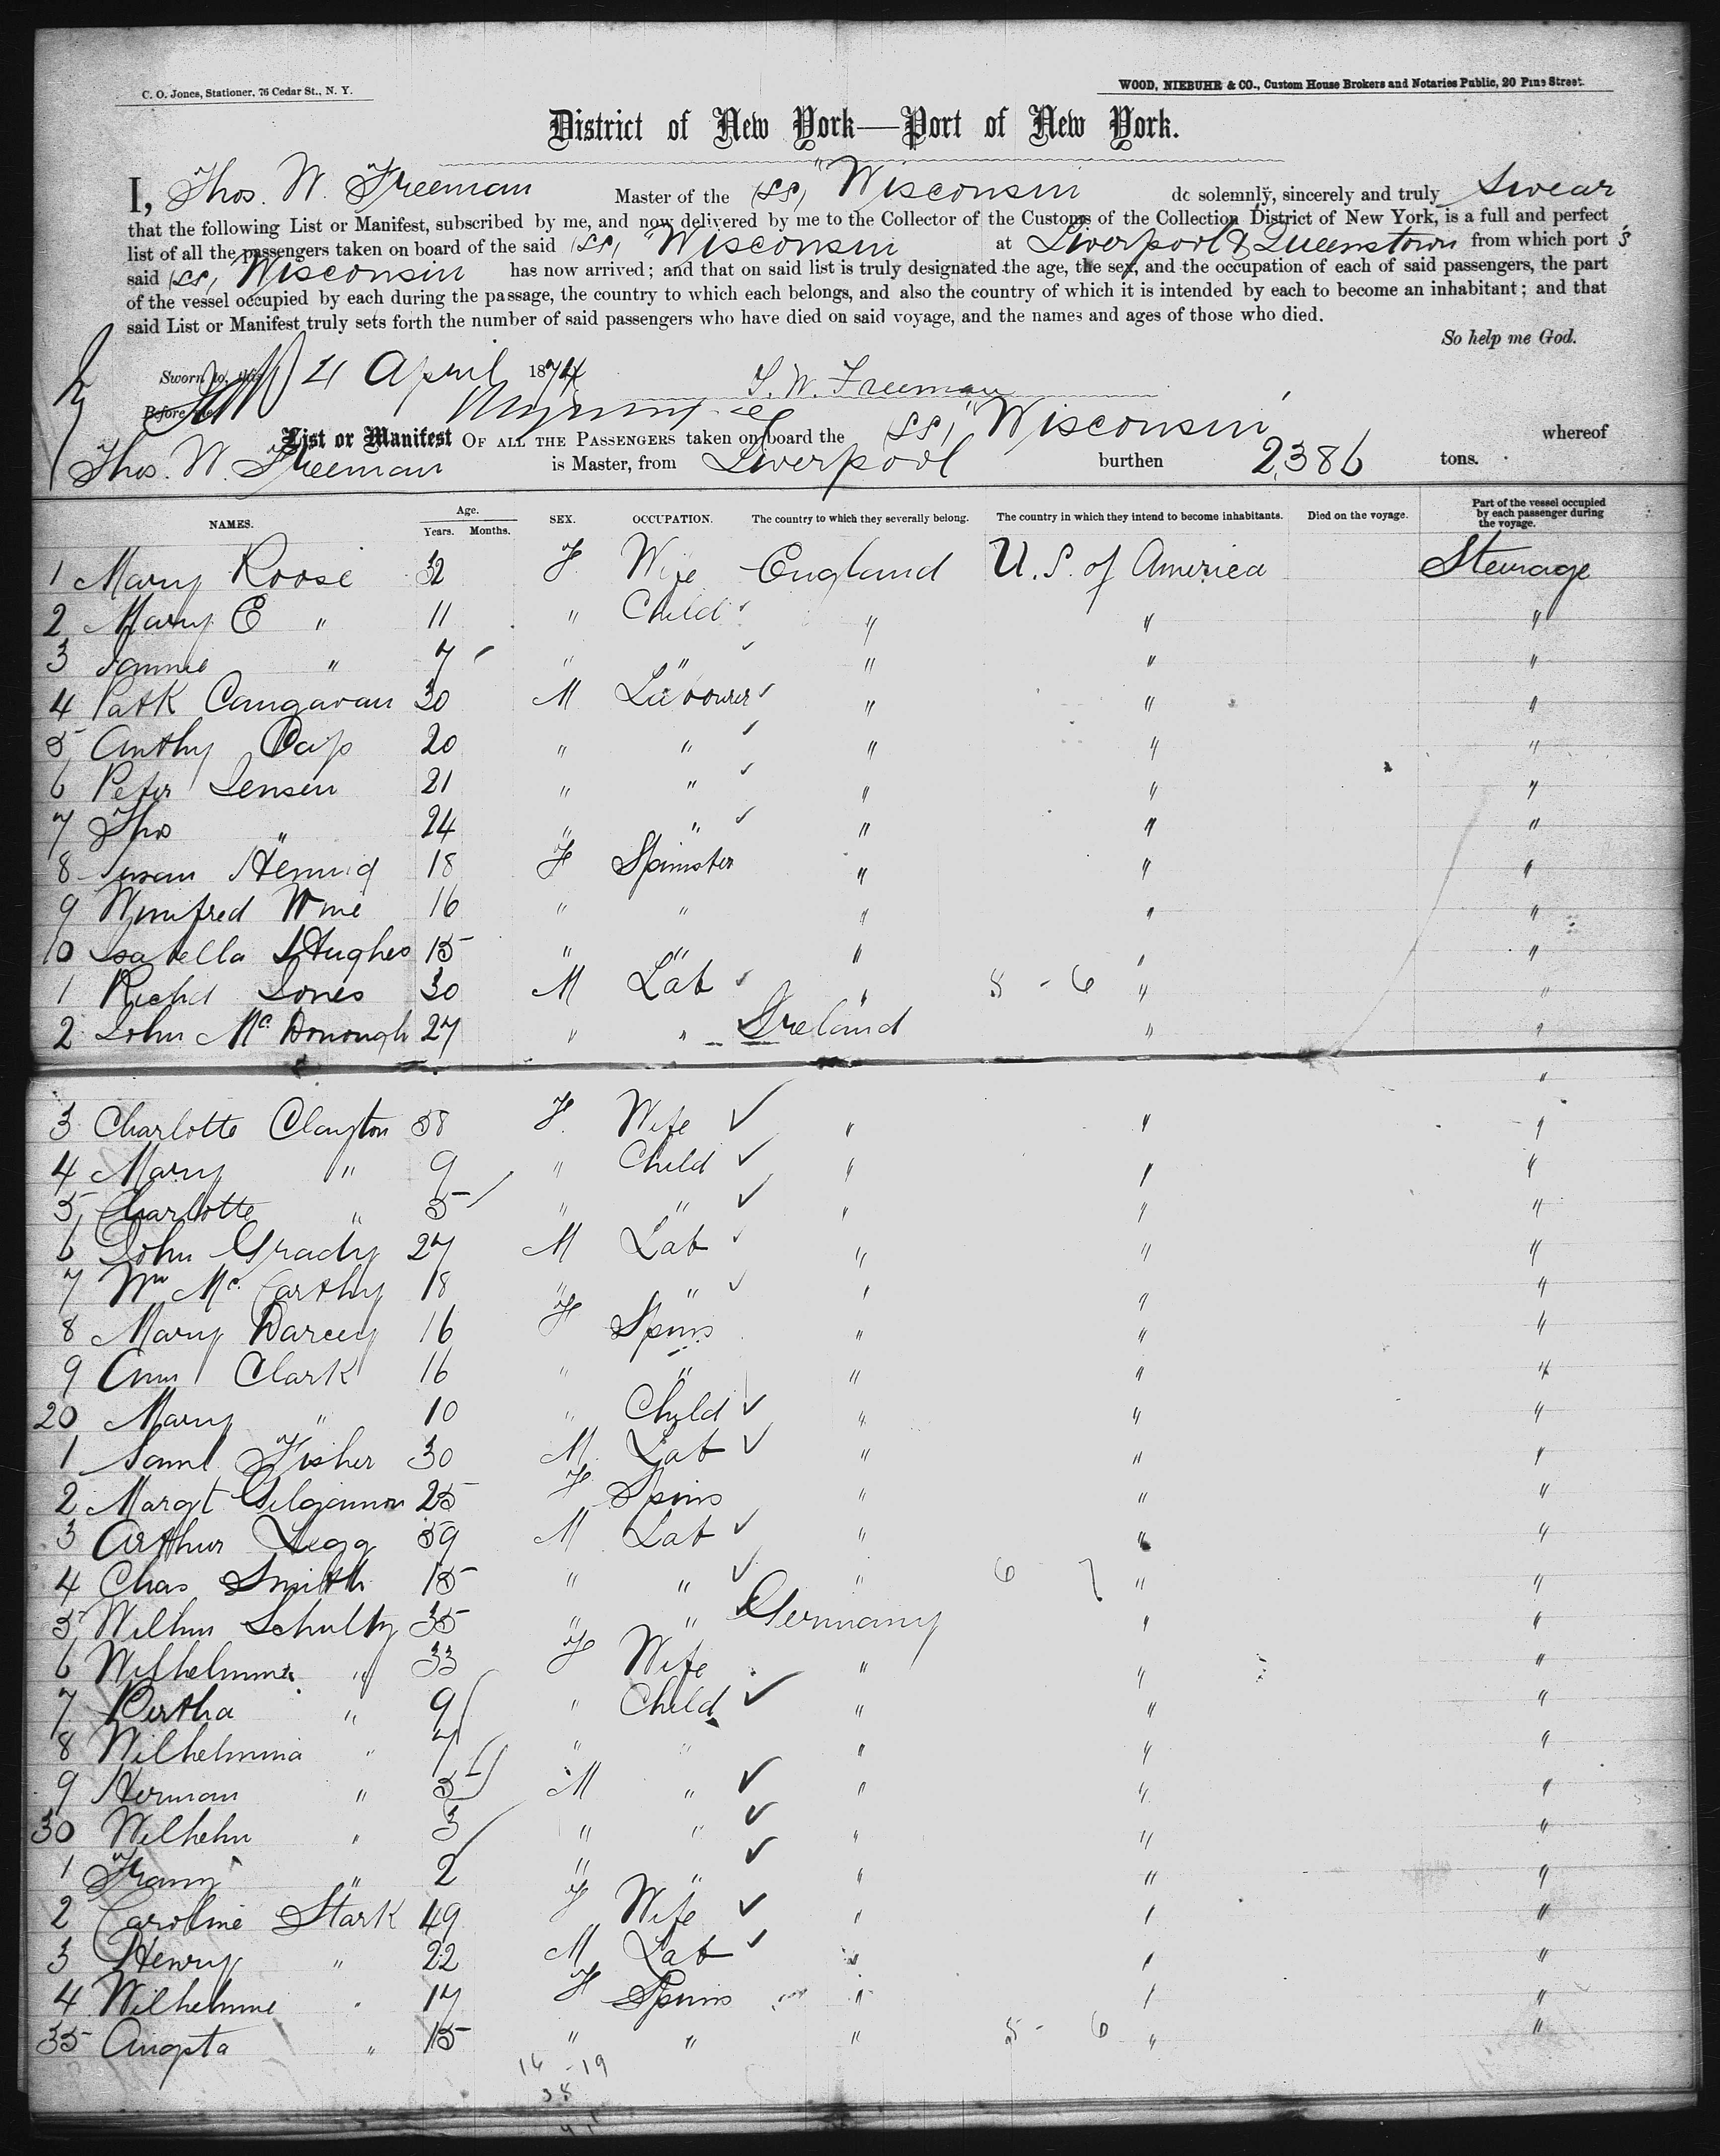 C. O. Jones, Stationer, 76 Cedar St., N. Y.
WOOD, NIEBUHR & CO., Custom House Brokers and Notaries Public, 20 Pine Street.
District of New York—Port of New York.
I, Thos. W. Freeman Master of the (SS) "Wisconsin" do solemnly, sincerely and truly Swear
that the following List or Manifest, subscribed by me, and now delivered by me to the Collector of the Customs of the Collection District of New York, is a full and perfect
list of all the passengers taken on board of the said (SS) "Wisconsin at Liverpool & Queenstown from which port s
said (SS) "Wisconsin has now arrived; and that on said list is truly designated the age, the sex, and the occupation of each of said passengers, the part
of the vessel occupied by each during the passage, the country to which each belongs, and also the country of which it is intended by each to become an inhabitant; and that
said List or Manifest truly sets forth the number of said passengers who have died on said voyage, and the names and ages of those who died.
So help me God.
Sworn to, this 21 April 1874 T. W. Freeman
Before me
List or Manifest OF ALL THE PASSENGERS taken on board the (SS) "Wisconsin" whereof
Thos. W. Freeman is Master, from Liverpool burthen 2386 tons.
NAMES. Age. Years. Months. SEX. OCCUPATION. The country to which they severally belong. The country in which they intend to become inhabitants. Died on the voyage. Part of the vessel occupied by each passenger during the voyage.
1 Mary Roose 32 F Wife England U. S. of America Steerage
2 Mary E " 11 " Child " " "
3 " 7 " " " " "
4 Patk 30 M Labourer " " "
5 Anthy 20 " " " " "
6 Peter Jensen 21 " " " " "
7 Thos " 24 " " " " "
8 Susan 18 F Spinster " " "
9 Winifred 16 " " " " "
10 Isabella Hughes 15 " " " " "
1 Richd Jones 30 M Lab " 5 - 6 " "
2 John Mc Donough 27 " " Ireland " "
"
3 Charlotte Clayton 38 F Wife " " "
4 Mary " 9 " Child " " "
5 Charlotte " 5 " " " " "
6 John Grady 27 M Lab " " "
7 Wm Mc Carthy 18 " " " " "
8 Mary Darcey 16 F Spins " " "
9 Ann Clark 16 " " " " "
20 Mary " 10 " Child " " "
1 Saml Fisher 30 M Lab " " "
2 Margt 25 F Spins " " "
3 Arthur Legg 39 M Lab " " "
4 Chas Smith 15 " " " 6 7 " "
5 Wilhm Schultz 35 " " Germany " "
6 Wilhelmina " 33 F Wife " " "
7 Bertha " 9 " Child " " "
8 Wilhelmina " 7 " " " " "
9 Herman " 5 M " " " "
30 Wilhelm " 3 " " " " "
1 Franz " 2 " " " " "
2 Caroline Stark 49 F Wife " " "
3 Henry " 22 M Lab " " "
4 Wilhelmine " 17 F Spins " " "
35 Augsta " 15 " " " 5 - 6 " "
16 - 19
38